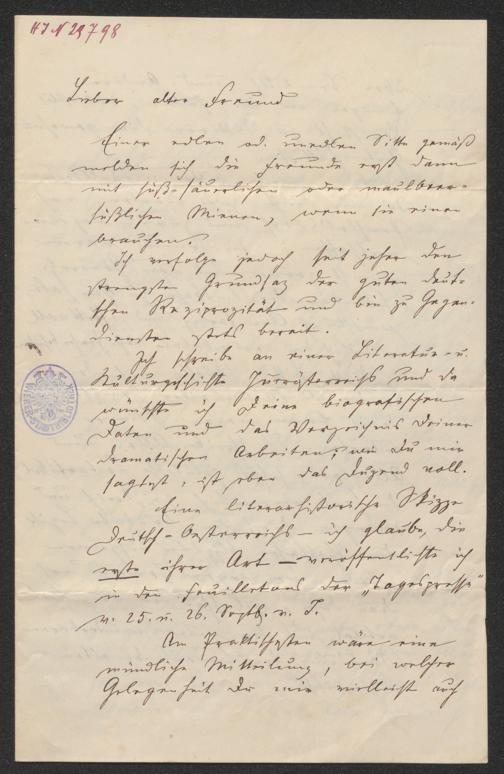 HIN 29798
Lieber alter Freund
Einer edlen od. unedlen Sitte gemäß
melden sich die Freunde erst dann
mit süß-säuerlichen oder maulbeer-
süßlichen Mienen, wenn sie einen
brauchen.
Ich verfolge jedoch seit jeher den
strengsten Grundsatz der guten deut-
schen Reziprozität und bin zu Gegen-
diensten stets bereit.
Ich schreibe an einer Literatur- u.
Kulturgeschichte Österreichs und da
wünschte ich Deine biografischen
Daten und das Verzeichnis Deiner
dramatischen Arbeiten; wie Du mir
sagtest, ist eben das Dutzend voll.
Eine literarhistorische Skizze
Deutsch-Oesterreichs – ich glaube, die
erste ihrer Art – veröffentlichte ich
in den Feuilletons der „Tagespresse“
v. 25. u. 26. Septb. v. J.
Am Praktischsten wäre eine
mündliche Mitteilung, bei welcher
Gelegenheit Du mir vielleicht auch